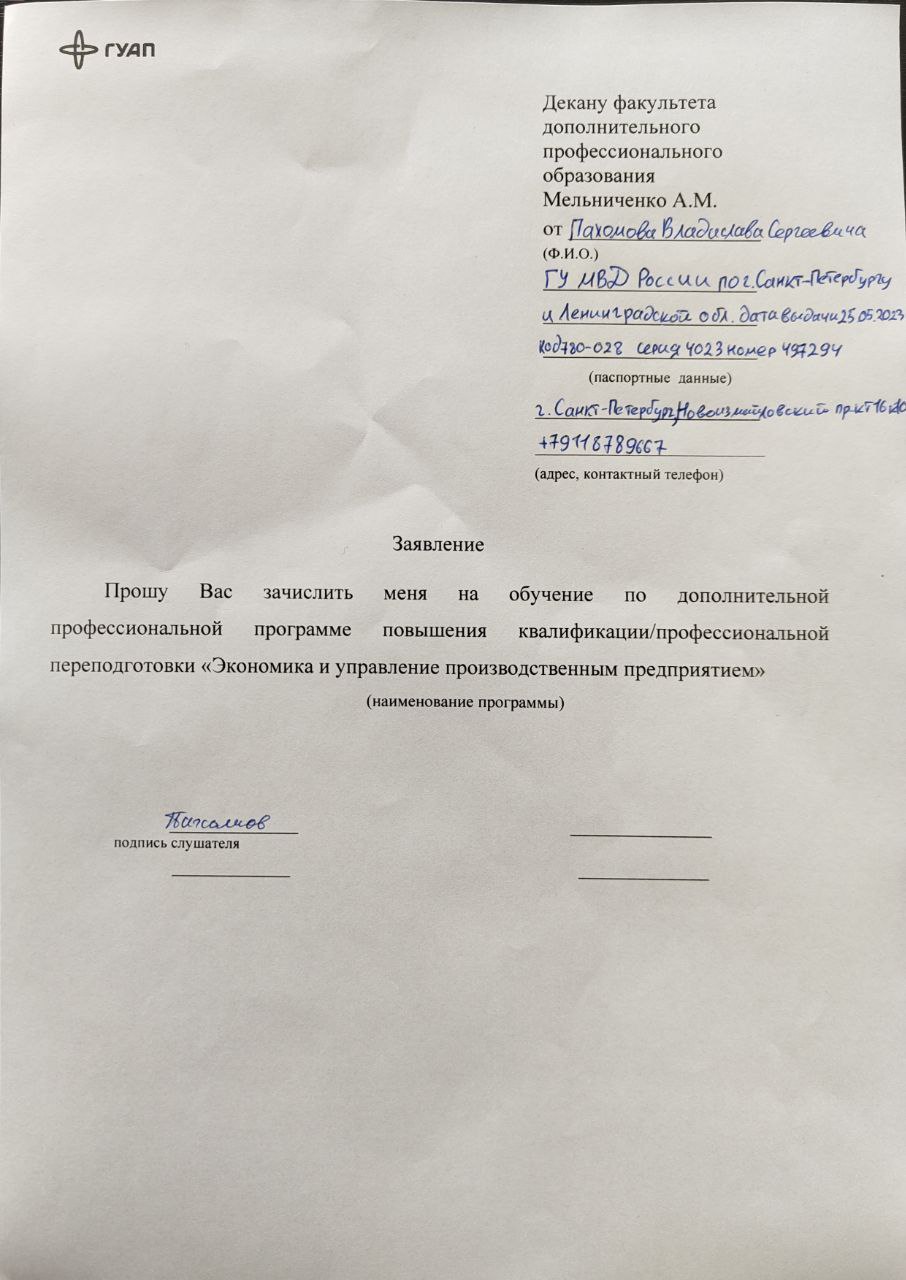 ГУАП
Декану факультета
дополнительного
профессионального
образования
Мельниченко А.М.
от Пахомова Владислава Сергеевича
(Ф.И.О.)
ГУ МВД России по г.Санкт-Петербургу
и Ленинградской обл. дата выдачи 25.05.2023
код780-028 серия 4023 номер 497294
(паспортные данные)
г. Санкт-Петербург, Новоизмайловский пр-кт 16
+79118789667
(адрес, контактный телефон)
Заявление
Прошу Вас зачислить меня на обучение по дополнительной
профессиональной программе повышения квалификации/профессиональной
переподготовки «Экономика и управление производственным предприятием»
(наименование программы)
Пахомов
подпись слушателя